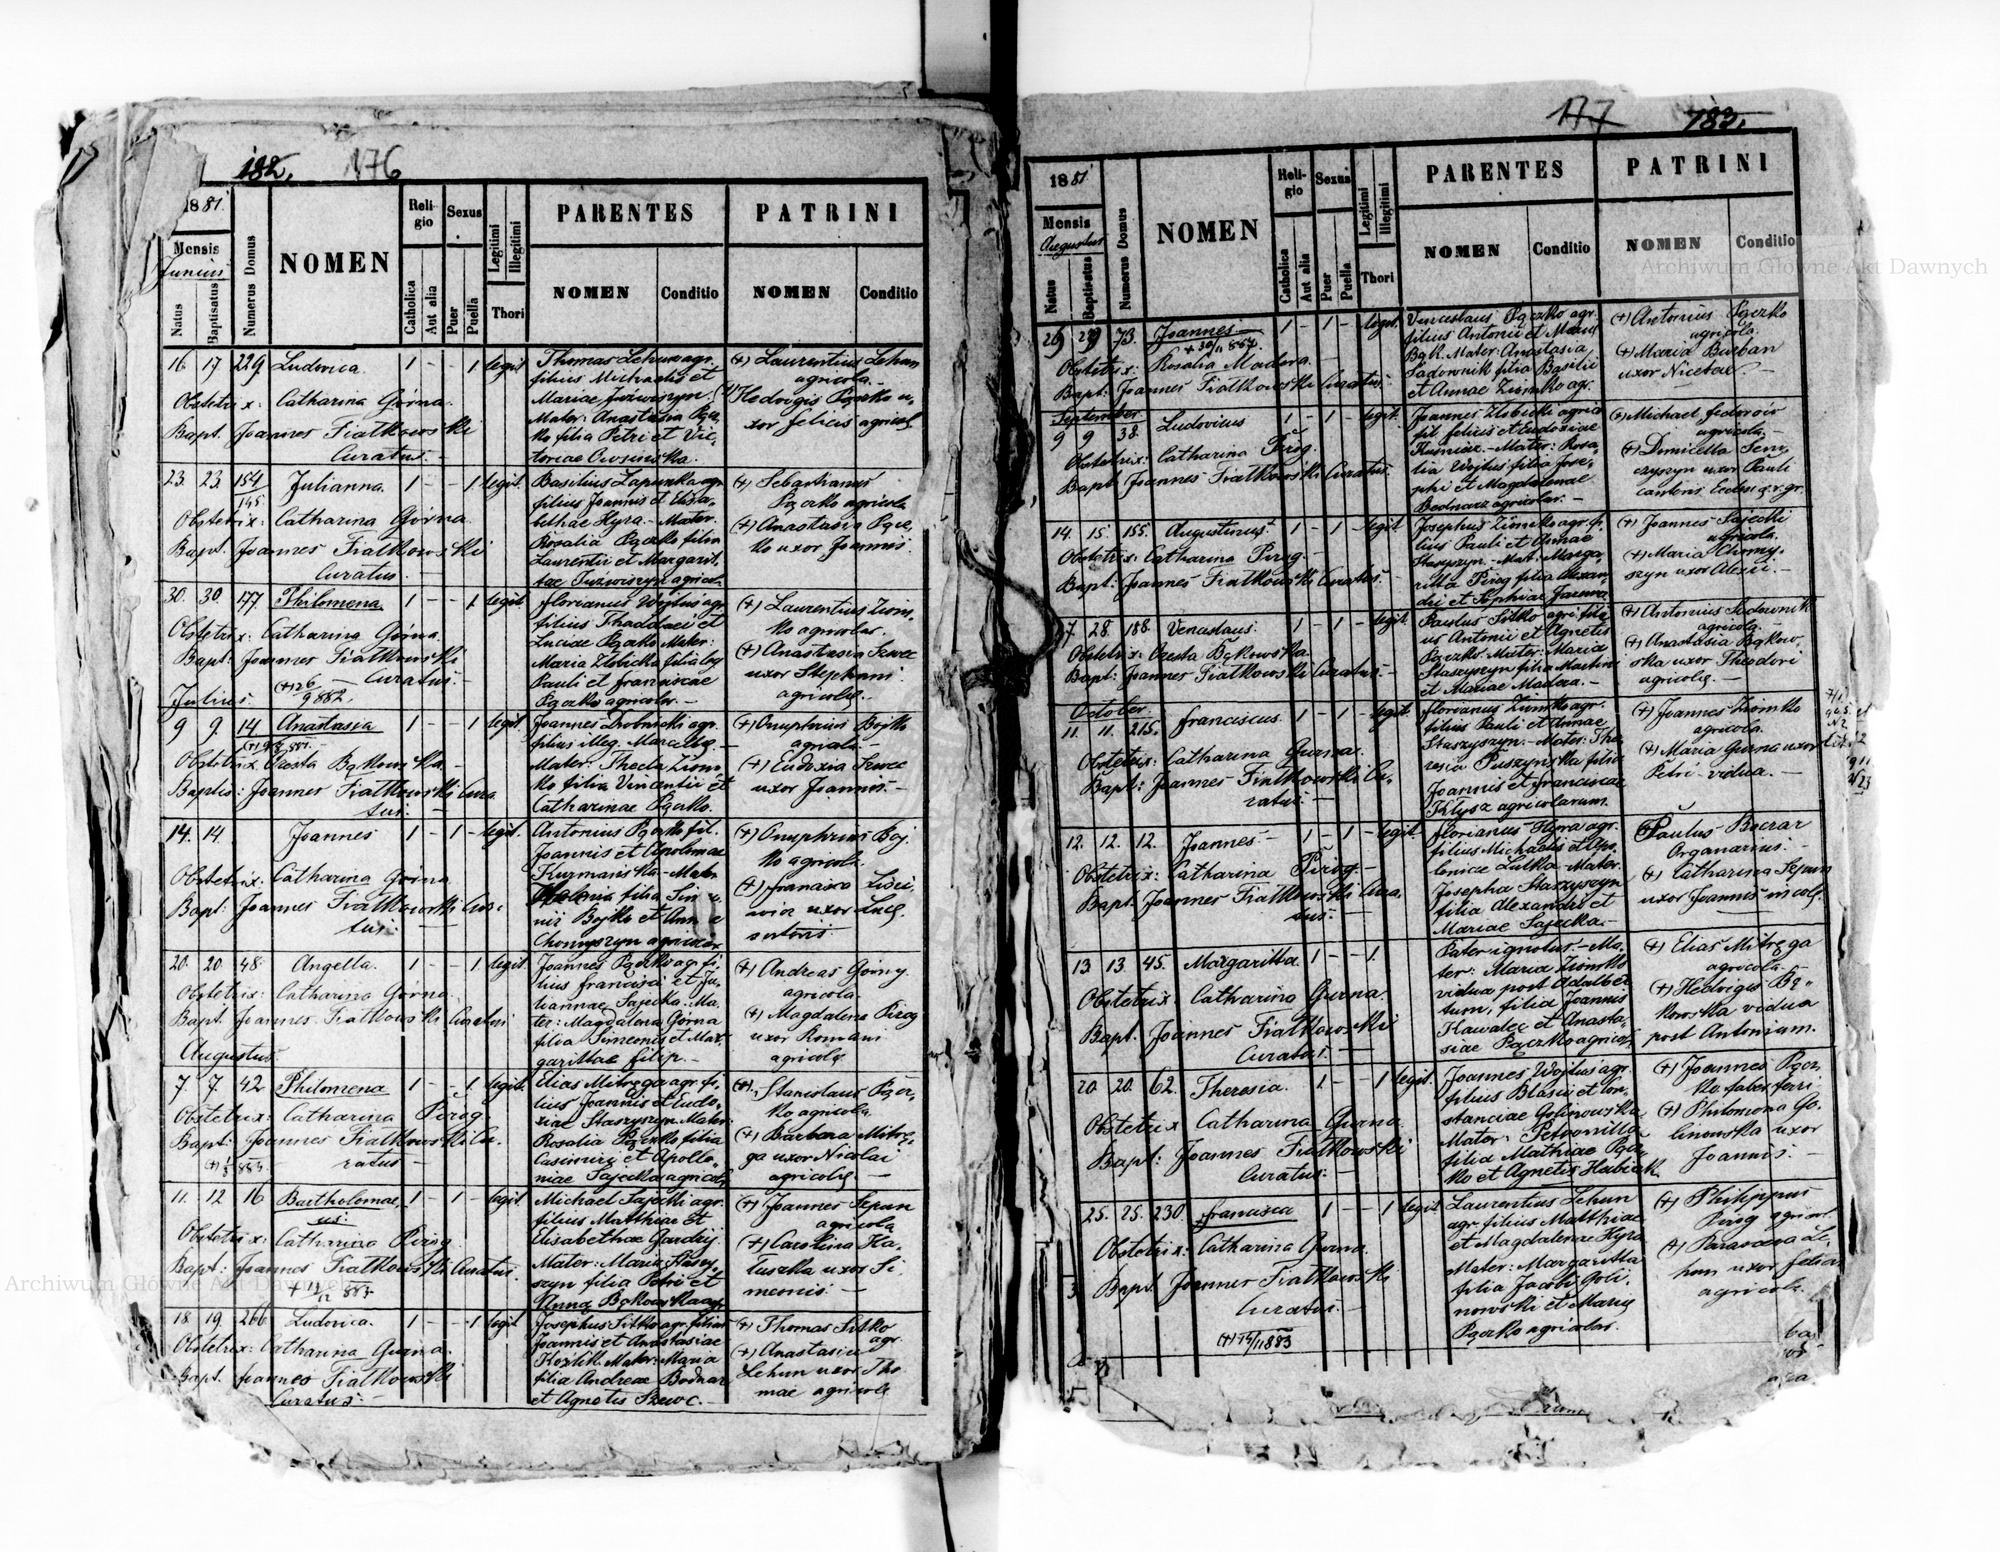 182. 176
1881.
Mensis
Junius
Natus
Baptisatus
Numerus Domus
NOMEN
Religio
Catholica
Aut alia
Sexus
Puer
Puella
Legitimi
Illegitimi
Thori
PARENTES
NOMEN
Conditio
PATRINI
NOMEN
Conditio
16 17 229 Ludovica. 1 - - 1 legit
Obstetrix: Catharina Górna.
Bapt. Joannes Fiatkowski
Curatus. -
Thomas Lehun agr.
filius Michaelis et
Mariae
Mater: Anastasia Pącz
ko filia Petri et Vic,
toriae
(+) Laurentius Lehun
agricola. -
Hedvigis Pączko u,
xor felicis agricol
23 23 154 Julianna. 1 - - 1 legit.
145
Obstetrix: Catharina Górna
Bapt. Joannes Fiatkowski
Curatus.
Basilius Łapunka agr
filius Joannis et Elisa,
bethae Hyra. - Mater.
Rosalia Pączko filia
Laurentii et Margarit,
tae
(+) Sebastianus
Pączko agricola
(+) Anastasia Pącz
ko uxor Joannis
30. 30. 177. Philomena 1 - - 1 legit
Obstetrix: Catharina Górna.
Bapt: Joannes Fiatkowski
Curatus. -
(+) 26/9 882.
Florianus Wojtus agr
filius Thaddaei et
Luciae Pączko Mater:
Maria Złobicka filia
Pauli et franciscae
Pączko agricolar. -
(+) Laurentius Ziom,
ko agricolas.
(+) Anastasia Szwec
uxor Stephani
agricolę. -
Julius.
9 9. 14 Anastasia 1 - - 1 legit.
Obstetrix Bąkowska. -
Baptis: Joannes Fiatkowski Cura
tus. -
Joannes agr.
filius illeg. Marcellę. -
Mater: Thecla Ziom
ko filia Vincentii et
Catharinae Pączko.
(+) Onuphrius Bojko
agricola. -
(+) Eudoxia Szwec
uxor Joannis. -
14. 14. Joannes 1 - 1 - legit.
Obstetrix: Catharina Górna
Bapt: Joannes Fiatkowski Cura
tus. -
Antonius Pączko fil.
Joannis et Apoloniae
Kurmanska - Mater
filia
Bojko et Annae
Chomyszyn
(+) Onuphrius Boj,
ko agricola.
(+) francisca
uxor Lucę
sutoris
20. 20. 48. Angella. 1 - - 1 legit.
Obstetrix: Catharina Górna.
Bapt. Joannes Fiatkowski Curatus
Joannes Pączko agr. fi,
lius francisci et Ju,
liannae Sajecka. Ma,
ter: Magdalena Górna
filia Simeonis et Mar,
garittae
(+) Andreas Górny.
agricola.
(+) Magdalena Pirog
uxor Romani
agricolę
Augustus.
7 7. 42 Philomena 1 - - 1. legit.
Obstetrix: Catharina Pirog.
Bapt: Joannes Fiatkowski Cu,
ratus -
Elias Mitręga agr. fi,
lius Joannis et Eudo,
xiae Staszyszyn. Mater:
Rosalia Pączko filia
Casimiri et Apollo,
niae Sajecka agricol.
(+) Stanislaus Pącz,
ko agricola
(+) Barbara Mitrę,
ga uxor Nicolai
agricolę. -
11. 12 16 Bartholomae, 1 - 1 - legit
us.
Obstetrix: Catharina Pirog.
Bapt: Joannes Fiatkowski Curatus.
Michael Sajecki agr.
filius Matthiae et
Elisabethae
Mater: Maria Stasy,
szyn filia Petri et
Anna Bąkowska
(+) Joannes Sepun
agricola
(+) Carolina Ka,
tuszka uxor Si
meonis. -
18 19. 266 Ludovica. 1 - - 1 legit
Obstetrix: Catharina Gurna.
Bapt. Joannes Fiatkowski
Curatus. -
Josephus Sitko agr. filius
Joannis et Anastasiae
Kozlik. Mater: Maria
filia Andreae Bodnar
et Agnetis Szewc. -
(+) Thomas Sitko
agr.
(+) Anastasia
Lehun uxor Tho
mae agricolę
177 183.
1881
Mensis
Augustus
Natus
Baptisatus
Numerus Domus
NOMEN
Religio
Catholica
Aut alia
Sexus
Puer
Puella
Legitimi
Illegitimi
Thori
PARENTES
NOMEN
Conditio
PATRINI
NOMEN
Conditio
29 29 73. Joannes 1 - 1 - legit.
Obstetrix: Rosalia Madera.
Bapt: Joannes Fiatkowski Curatus. -
Venceslaus Pączko agr.
filius Antonii et Mariae
Bąk. Mater: Anastasia
Sadownik filia Basilii
et Annae Ziomko agr.
(+) Antonius Pączko
agricola.
(+) Maria Burban
uxor Nicetae -
September
9 9 38. Ludovicus 1 - 1 - legit.
Obstetrix: Catharina Pirog.
Bapt: Joannes Fiatkowski Curatus. -
Joannes Złobicki agrico
fil felicis et Eudoxiae
Kusniar. - Mater: Rosa,
lia Wojtus filia Jose,
phi et Magdalenae
Bednarz agricolar. -
(+) Michael
agricola -
(+) Domicella Sem,
czyszyn uxor Pauli
cantoris Eccles. gr. gr.
14. 15. 155. Augustinus. 1 - 1 - legit.
Obstetrix: Catharina Pirog. -
Bapt: Joannes Fiatkowski Curatus. -
Josephus Ziomko agr. fi,
lius Pauli et Annae
Staszyszyn. - Mat: Marga,
ritta Pirog filia Alexan,
dri et Sophiae
(+) Joannes Sajecki
agricola.
(+) Maria Chomy,
szyn uxor Alexii. -
27. 28. 188. Venceslaus. 1 - 1 - legit.
Obstetrix: Bąkowska.
Bapt: Joannes Fiatkowski Curatus. -
Paulus Sitko agr. fili,
us Antonii et Agnetis
Pączko. Mater: Maria
Staszyszyn filia Martini
et Mariae Madera. -
(+) Antonius Sadownik
agricola. -
(+) Anastasia Bąkow,
ska uxor Theodori
agricolę. -
October.
11. 11. 215. Franciscus. 1 - 1 - legit.
Obstetrix: Catharina Gurna.
Bapt: Joannes Fiatkowski Cu,
ratus. -
Florianus Ziomko agr.
filius Pauli et Annae
Staszyszyn. - Mater: The,
resia Puszynska filia
Joannis et franciscae
Klysz agricolarum.
(+) Joannes Ziomko
agricola.
(+) Maria Gurna uxor
Petri vidua. -
12. 12. 12. Joannes 1 - 1 - legit
Obstetrix: Catharina Pirog. -
Bapt. Joannes Fiatkowski Cura,
tus. -
Florianus Hyra agr.
filius Michaelis et Apo,
loniae Lutka - Mater.
Josepha Staszyszyn
filia Alexandri et
Mariae Sajecka -
Paulus
Organarius. -
(+) Catharina Sepun
uxor Joannis incolę.
13. 13. 45. Margaritta. 1 - - 1.
Obstetrix Catharina Gurna.
Bapt. Joannes Fiatkowski
Curatus. -
Pater ignotus. - Ma,
ter: Maria Ziomko
vidua post Adalber
tum, filia Joannis
Kawalec et Anasta,
siae Pączko agricol.
(+) Elias Mitręga
agricola. -
(+) Hedvigis Bą,
kowska vidua
post Antonium.
20. 20. 62. Theresia. 1. - - 1 legit.
Obstetrix Catharina Gurna
Bapt: Joannes Fiatkowski
Curatus. -
Joannes Wojtus agr.
filius Blasii et Con,
stanciae Golinowska
Mater: Petronilla
filia Mathiae Pącz
ko et Agnetis Habiak
(+) Joannes Pącz,
ko faber ferri
(+) Philomena Go,
linowska uxor
Joannis. -
25. 25. 230 Francisca 1 - - 1 legit
Obstetrix: Catharina Gurna.
Bapt. Joannes Fiatkowski
Curatus. -
(+) 14/11 883
Laurentius Lehun
agr. filius Matthiae
et Magdalenae Hyra
Mater: Margaritta
filia Jacobi Goli,
nowski et Marię
Pączko agricolar.
(+) Philippus
Pirog agricol.
(+) Parasceva Le,
hun uxor
agricolę.
Archiwum Główne Akt Dawnych
Archiwum Główne Akt Dawnych